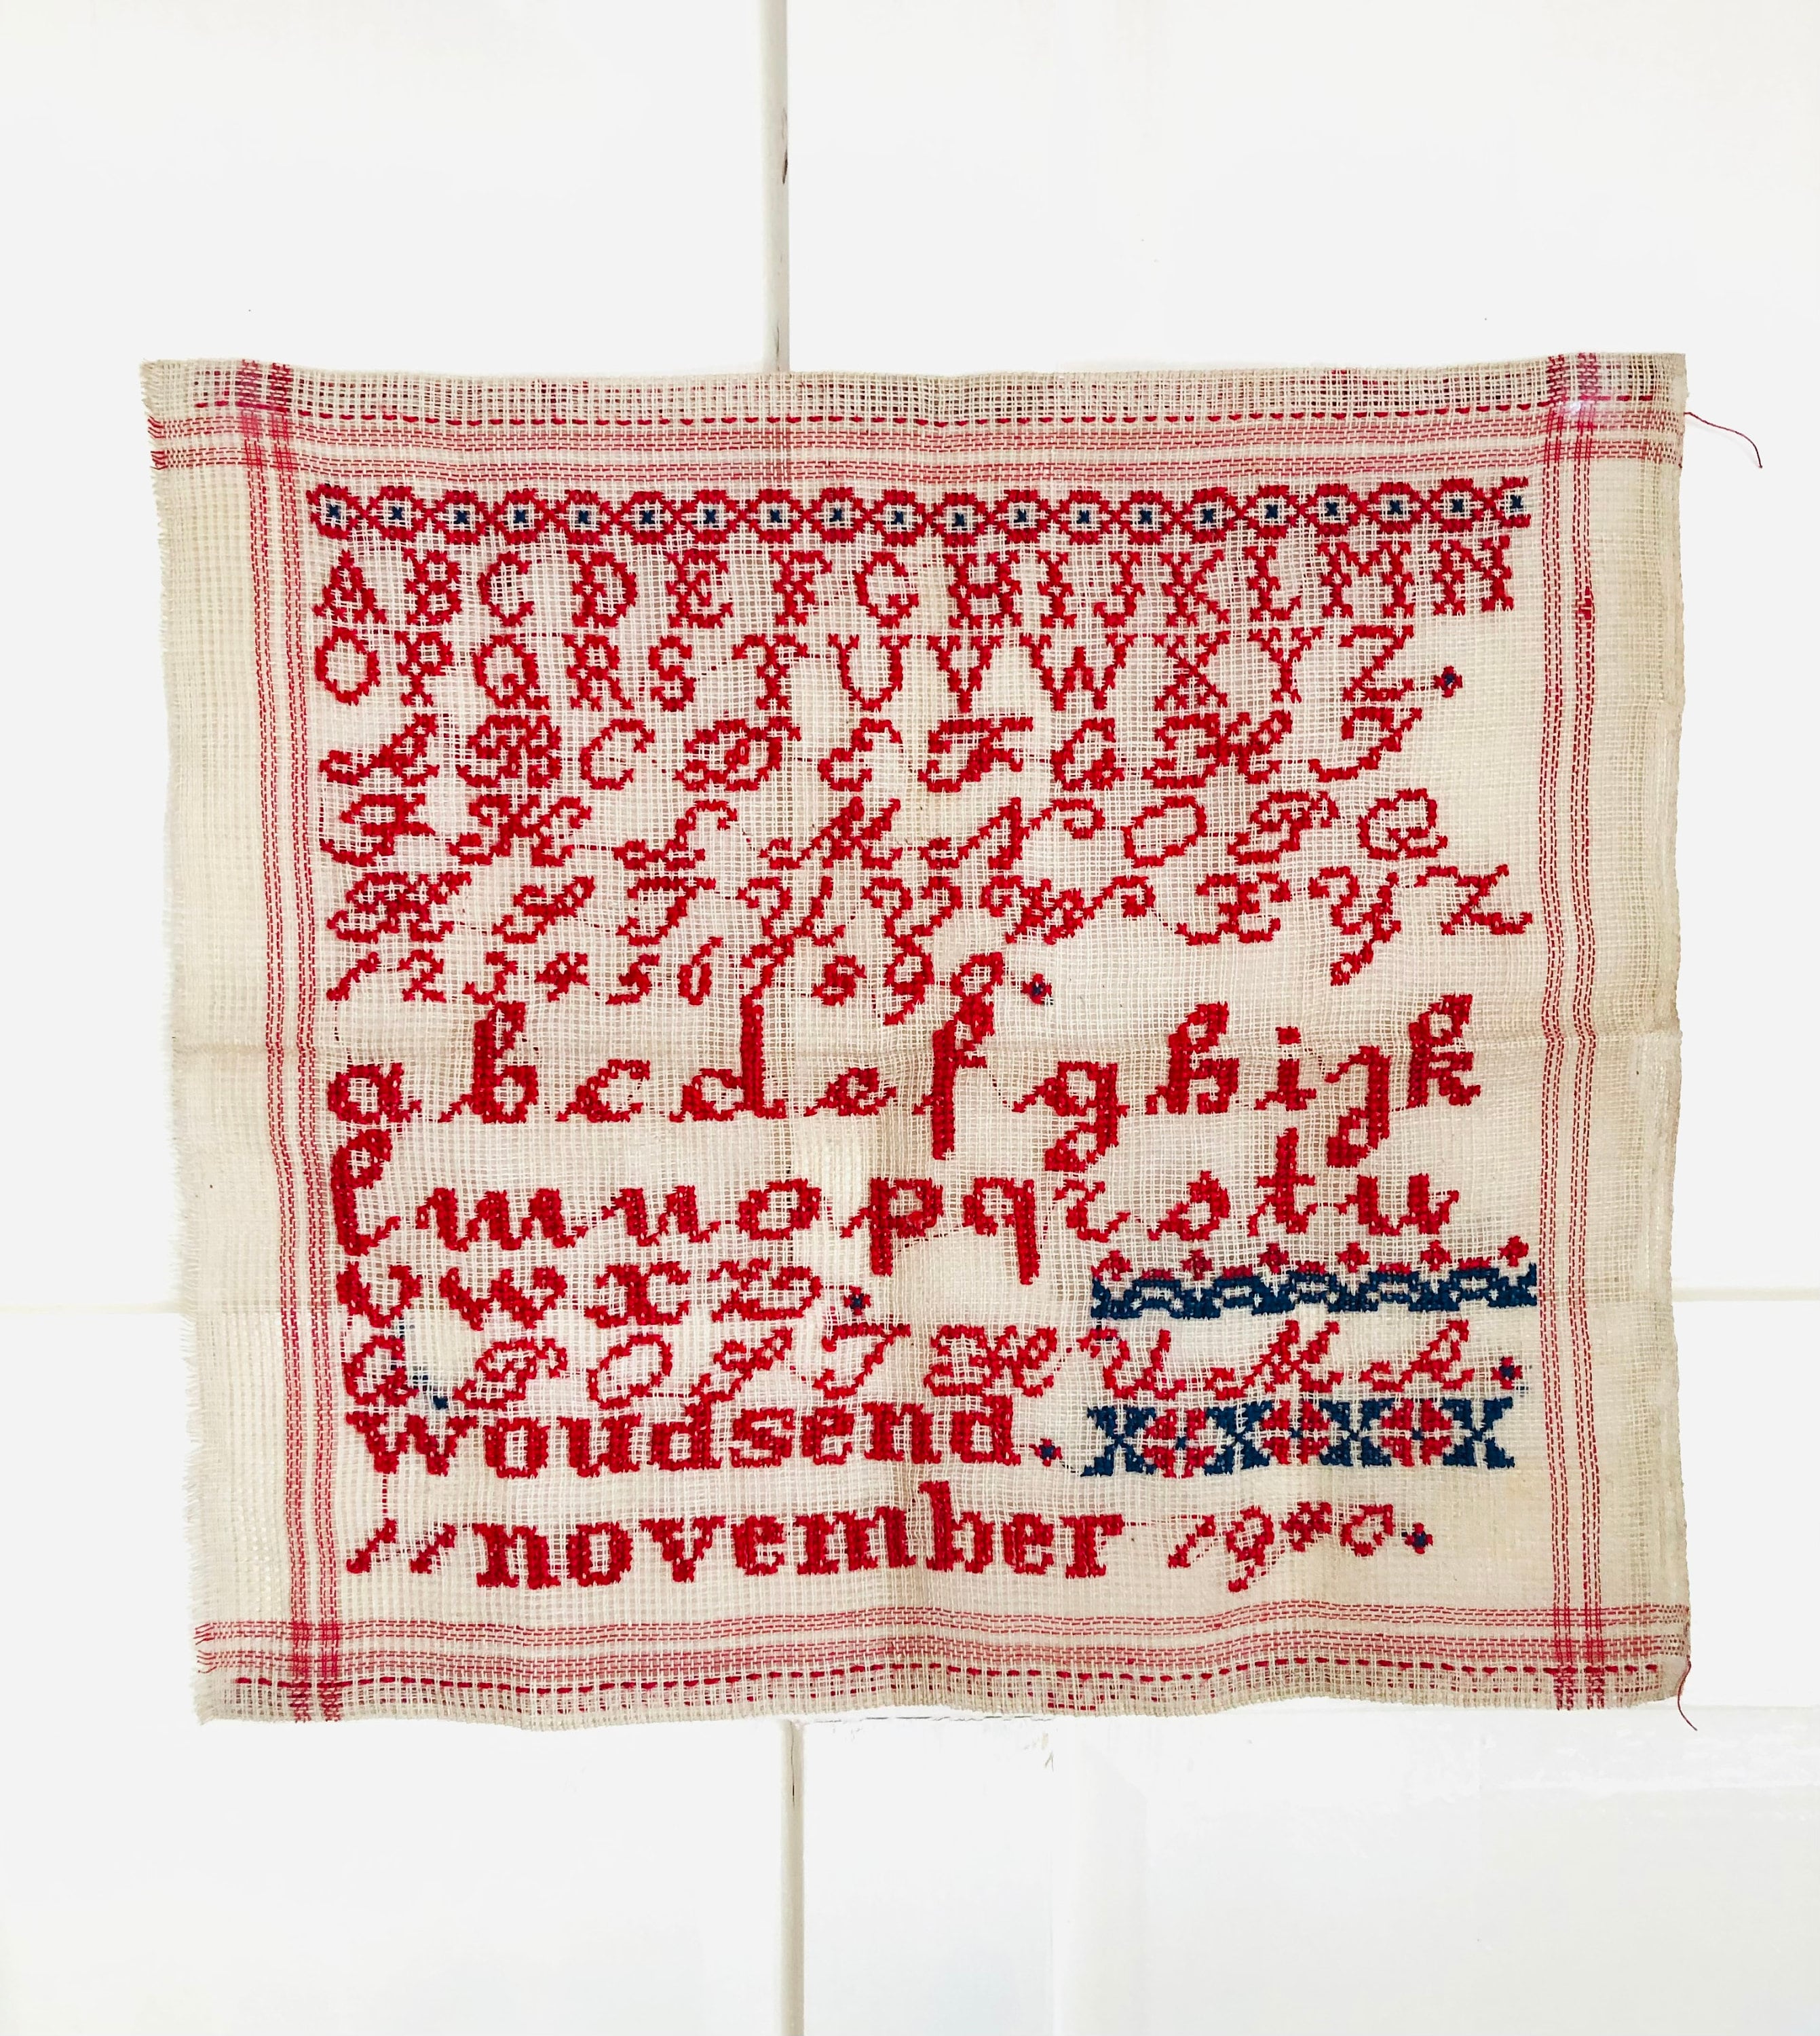 A B C D E F G H I J K L M N
O P Q R S T U V W X Y Z.
A B C D E F G H I
J K L M N O P Q
R S T U V W X Y Z
1 2 3 4 5 6 7 8 9 0.
a b c d e f g h i j k
l m n o p q r s t u
v w x z.
G P O S T H U M A.
woudsend.
11 november 1900.